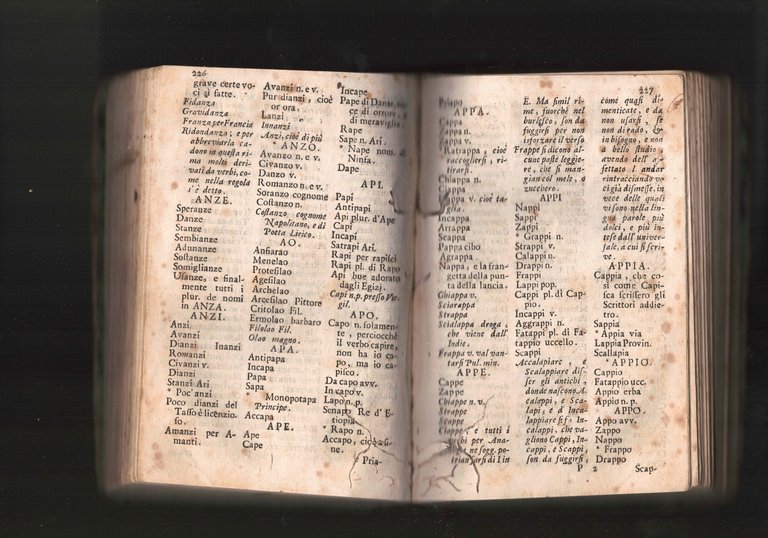 226
grave certe vo-
ci sì fatte.
Fidanza
Gravidanza
Franza per Francia
Ridondanza; e per
abbreviarla ca-
dono in questa ri-
ma molti deri-
vati da verbi, co-
me nella regola
s'è detto.
ANZE.
Speranze
Danze
Stanze
Sembianze
Adunanze
Sostanze
Somiglianze
Usanze, e final-
mente tutti i
plur. de nomi
in ANZA.
ANZI.
Anzi
Avanzi
Dianzi Inanzi
Romanzi
Civanzi v.
Dianzi
Stanzi Ari
* Poc' anzi
Poco dianzi del
Tasso è licenzio-
so.
Amanzi per A-
manti.
Avanzi n. e v.
Pur dianzi, cioè
or ora.
Lanzi
Innanzi
Anzi, cioè di più
* ANZO.
Avanzo n. e v.
Civanzo v.
Danzo v.
Romanzo n. e v.
Soranzo cognome
Costanzo n.
Costanzo cognome
Napolitano, e di
Poeta Lirico.
AO.
Anfiarao
Menelao
Protesilao
Agesilao
Archelao
Arcesilao Pittore
Critolao Fil.
Ermolao barbaro
Filolao Fil.
Olao magno.
APA.
Antipapa
Incapa
Papa
Sapa
Monopotapa
Principe.
Accapa
APE.
Ape
Cape
Incape
Pape di Dante, vo-
ce di orrore, e
di meraviglia.
Rape
Sape n. Ari.
* Nape nom. di
Ninfa.
Dape
API
Papi
Antipapi
Api plur. d'Ape
Capi
Incapi
Satrapi Ari.
Rapi per rapisci
Rapi pl. di Rapo
Api bue adorato
dagli Egizj.
Capi n. p. presso Vir-
gil.
APO.
Capo n. solamen-
te, perciocchè
il verbo capire,
non ha io ca-
po, ma io ca-
pisco.
Da capo avv.
In capo v.
Lapo n. p.
Senapo Re d'E-
tiopia
* Rapo n.
Accapo, cioè u-
ne.
Pria-
227
Priapo
APPA.
Cappa
Zappa n.
Zappa v.
Rattappa, cioè
raccogliersi, ri-
tirarsi.
Chiappa n.
Ciappa
Zappa v. cioè ta-
glia
Incappa
Arrappa
Scappa
Pappa cibo
Agrappa
Nappa, e la fran-
getta della pun-
ta della lancia.
Ghiappa v.
Sciarappa
Strappa
Scialappa droga,
che viene dall'
Indie.
Frappa v. val van-
tarsi Pul. min.
APPE.
Cappe
Zappe
Chiappe n. v.
Strappe
Scappe
E. Ma simil ri-
me, fuorchè nel
burlesco, son da
fuggirsi per non
isforzare il verso
Frappe si dicono al-
cune paste leggie-
re, che si man-
gian col mele, o
zucchero.
APPI
Nappi
Sappi
Zappi
* Grappi n.
Strappi v.
Calappi n.
Drappi n.
Frappi
Lappi pop.
Cappi pl. di Cap-
pio.
Incappi v.
Aggrappi n.
Fatappi pl. di Fa-
tappio uccello.
Scappi
Accalapiare, e
Scalappiare dis-
ser gli antichi,
donde nascono A-
calappi, e Sca-
lapi, e d'Inca-
lappiare si fè: In-
calappi, che va-
gliono Cappi, In-
cappi, e Scappi,
son da fuggirsi,
come quasi di-
menticate, e da
non usarsi, se
non di rado, &
in bisogno, e non
a bello studio,
avendo dell' af-
fettato l'andar
rintracciando vo-
ci già dismesse, in
vece delle quali
vi sono nella lin-
gua parole più
dolci, e più in-
tese dall' univer-
sale, a cui si scri-
ve.
APPIA.
Cappia, che co-
sì come Capi-
sca scrissero gli
Scrittori addie-
tro.
Sappia
* Appia via
Lappia Provin.
Scallapia
* APPIO.
Cappio
Fatappio ucc.
Appio erba
Appio n. p.
APPO.
Appo avv.
Zappo
Nappo
Frappo
Drappo
P 2
Scap-